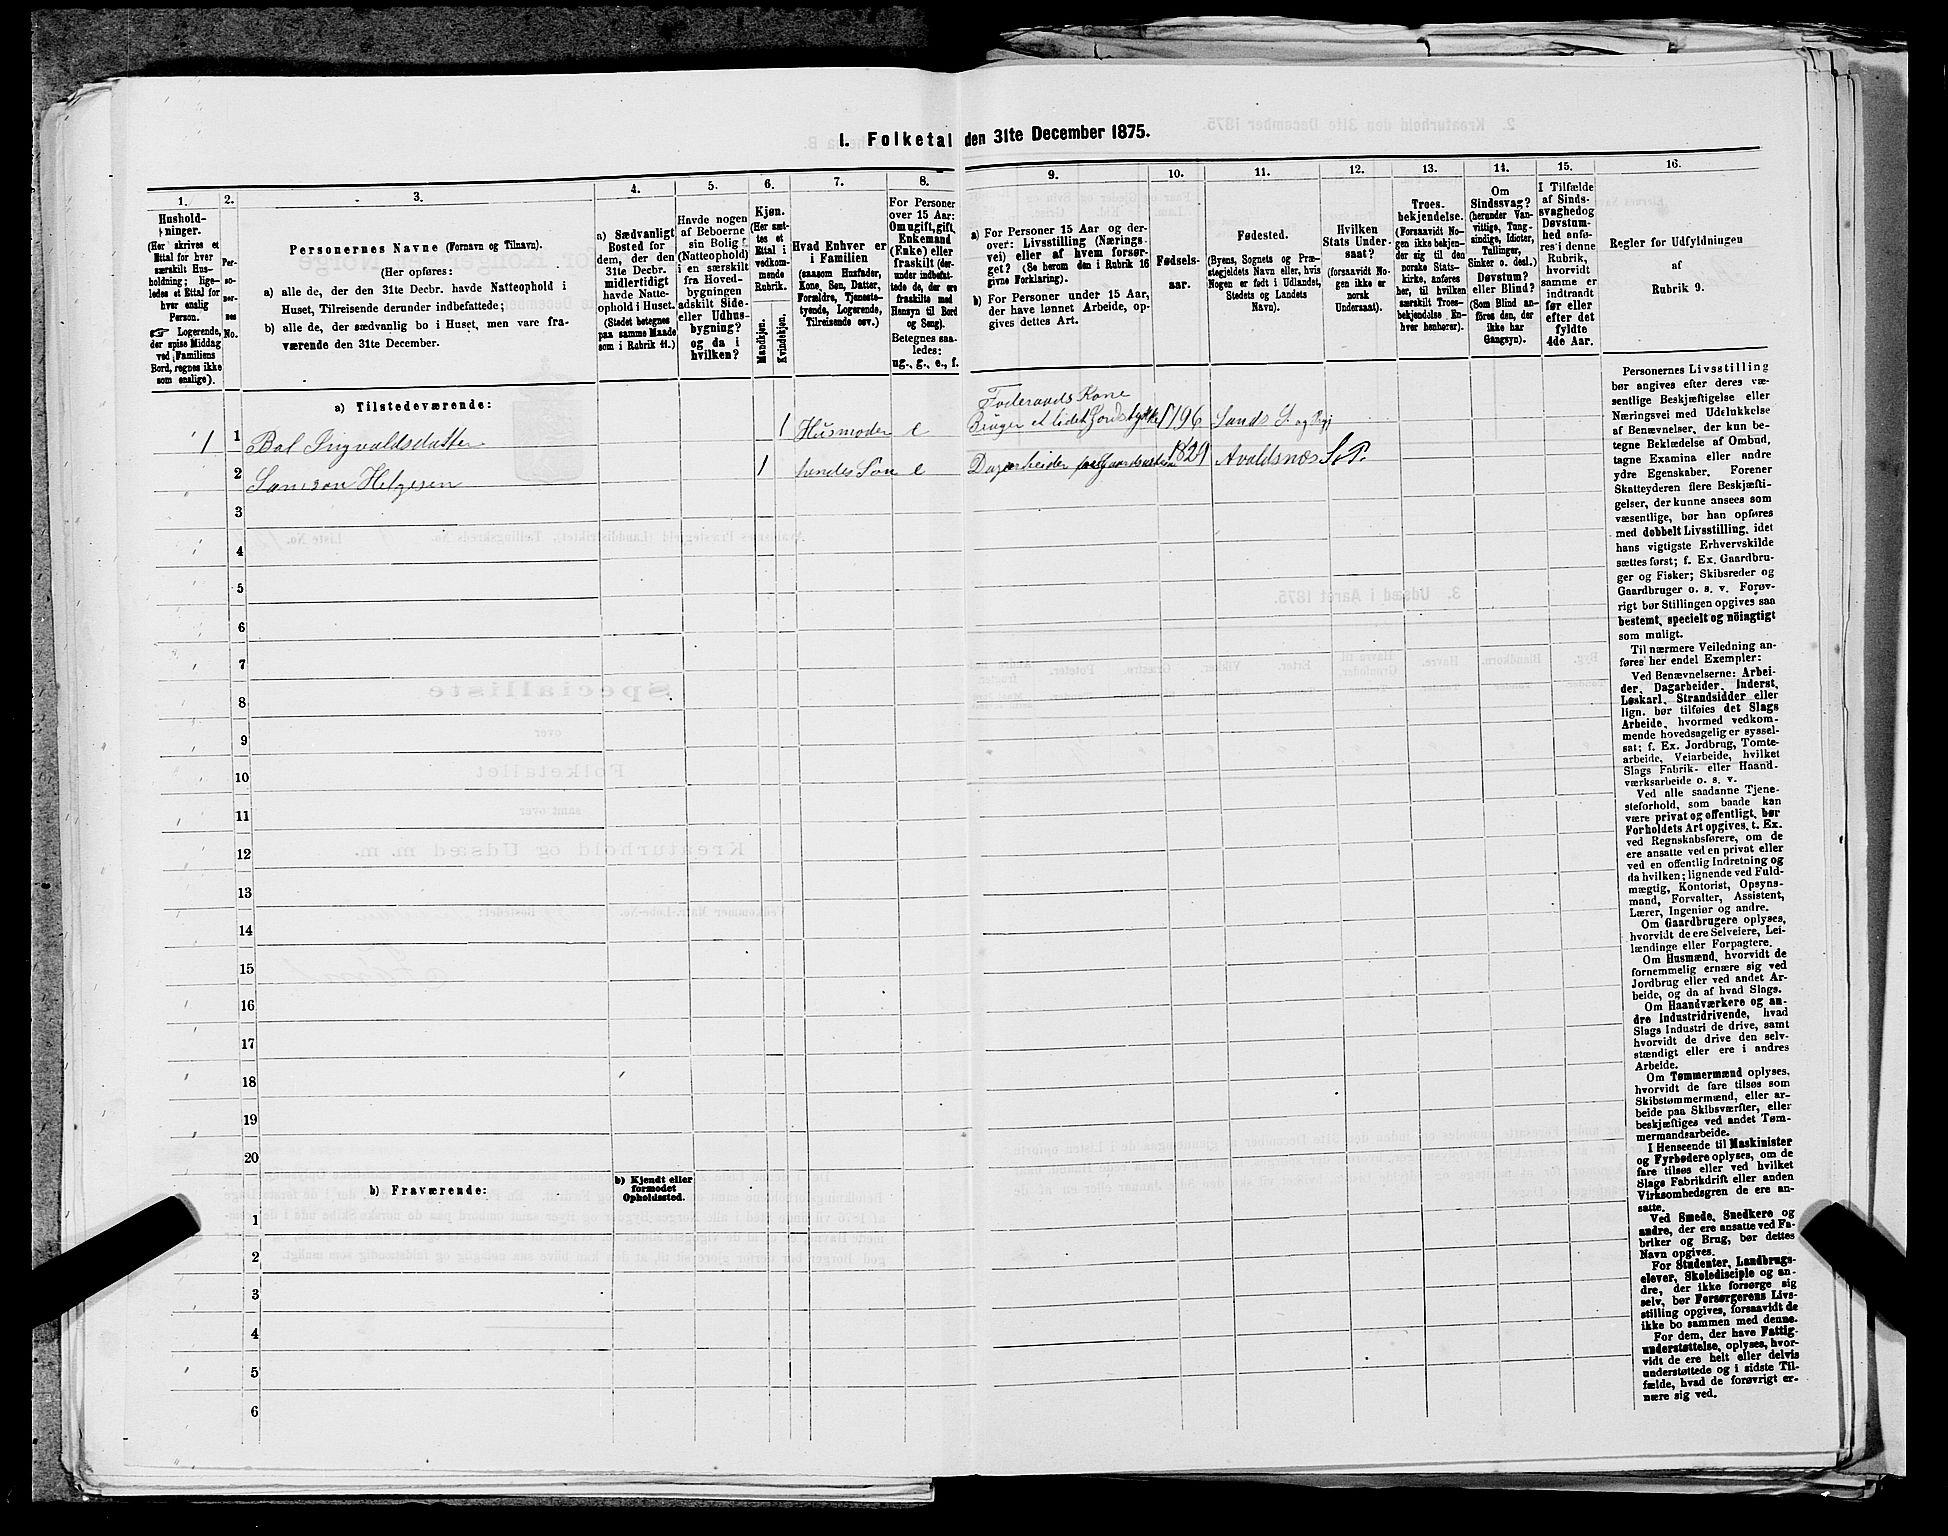 1. Folketal den 31te December 1875.
1.
Hushold-
ninger.
(Her skrives et
Ettal for hver
særskilt Hus-
holdning; lige-
ledes et Ettal for
hver enslig
Person.
☞ Logerende,
der spise Middag
ved Familiens
Bord, regnes ikke
som enslige).
2.
Per-
so-
ner-
nes
No.
3.
Personernes Navne (Fornavn og Tilnavn).
(Her opføres:
a) alle de, der den 31te Decbr. havde Natteophold i
Huset, Tilreisende derunder indbefattede;
b) alle de, der sædvanlig bo i Huset, men vare fra-
værende den 31te December.
4.
a) Sædvanligt
Bosted for
dem, der den
31te Decbr.
midlertidigt
havde Natte-
ophold i Huset.
(Stedet betegnes
paa samme Maade
som i Rubrik 11.)
5.
Havde nogen
af Beboerne
sin Bolig
(Natteophold)
i en særskilt
fra Hoved-
bygningen
adskilt Side-
eller Udhus-
bygning?
og da i
hvilken?
6.
Kjøn.
(Her sæt-
tes et
Ettal i
vedkom-
mende
Rubrik.
Mandkjøn.
Kvindekjøn.
7.
Hvad Enhver er
i Familien
(saasom Husfader,
Kone, Søn, Datter,
Forældre, Tjeneste-
tyende, Logerende,
Tilreisende osv.)
8.
For Personer
over 15 Aar:
Om ugift, gift,
Enkemand
(Enke) eller
fraskilt (der-
under indbefat-
tede de, der ere
fraskilte med
Hensyn til Bord
og Seng).
Betegnes saa-
ledes:
ug., g., e., f.
9.
a) For Personer 15 Aar og der-
over: Livsstilling (Nærings-
vei) eller af hvem forsør-
get? (Se herom den i Rubrik 16
givne Forklaring).
b) For Personer under 15 Aar,
der have lønnet Arbeide, op-
gives dettes Art.
10.
Fødsels-
aar.
11.
Fødested.
(Byens, Sognets og Præ-
stegjeldets Navn eller, hvis
Nogen er født i Udlandet,
Stedets og Landets
Navn).
12.
Hvilken
Stats Under-
saat?
(forsaavidt No-
gen ikke er
norsk
Undersaat).
13.
Troes-
bekjendelse.
(Forsaavidt No-
gen ikke bekjen-
der sig til den
norske Stats-
kirke, anføres
her, til hvilken
særskilt Troes-
bekjendelse En-
hver henhører).
14.
Om
Sindssvag?
(herunder Van-
vittige, Tung-
sindige, Idioter,
Tullinger,
Sinker o. desl.)
Døvstum?
eller Blind?
(Som Blind an-
føres den, der
ikke har
Gangsyn).
15.
I Tilfælde
af Sinds-
svaghed og
Døvstum-
hed anfø-
res i denne
Rubrik,
hvorvidt
samme er
indtraadt
før eller
efter det
fyldte
4de Aar.
16.
Regler for Udfyldningen
af
Rubrik 9.
a) Tilstedeværende:
Foderaads Kone
1 1 Bol Ingvaldsdatter 1 Husmoder e Bruger et lidet Jordstykke 1796 Sands S. og Prgj
2 Samson Helgesen 1 hendes Søn e Dagarbeider 1829 Avaldsnæs S. P.
3
4
5
6
7
8
9
10
11
12
13
14
15
16
17
18
19
20
b) Fraværende:
b) Kjendt eller
formodet
Opholdssted.
1
2
3
4
5
6
Personernes Livsstilling
bør angives efter deres væ-
sentlige Beskjæftigelse eller
Næringsvei med Udelukkelse
af Benævnelser, der kun be-
tegne Beklædelse af Ombud,
tagne Examina eller andre
ydre Egenskaber. Forener
Skatteyderen flere Beskjæfti-
gelser, der kunne ansees som
væsentlige, bør han opføres
med dobbelt Livsstilling, idet
hans vigtigste Erhvervskilde
sættes først; f. Ex. Gaardbru-
ger og Fisker; Skibsreder og
Gaardbruger o. s. v. Forøv-
rigt bør Stillingen opgives saa
bestemt, specielt og nöiagtigt
som muligt.
Til nærmere Veiledning an-
føres her endel Exempler:
Ved Benævnelserne: Arbei-
der, Dagarbeider, Inderst,
Løskarl, Strandsidder eller
lign. bør tilføies det Slags
Arbeide, hvormed vedkom-
mende hovedsagelig er syssel-
sat; f. Ex. Jordbrug, Tomte-
arbeide, Veiarbeide, hvilket
Slags Fabrik- eller Haand-
værksarbeide o. s. v.
Ved alle saadanne Tjene-
steforhold, som baade kan
være privat og offentligt, bør
Forholdets Art opgives, t. Ex.
ved Regnskabsførere, om de
ere ansatte ved en privat eller
ved en offentlig Indretning og
da hvilken; lignende ved Fuld-
mægtig, Kontorist, Opsyns-
mand, Forvalter, Assistent,
Lærer, Ingeniør og andre.
Om Gaardbrugere oplyses,
hvorvidt de ere Selveiere, Lei-
lændinge eller Forpagtere.
Om Husmænd, hvorvidt de
fornemmelig ernære sig ved
Jordbrug eller ved andet Ar-
beide, og da af hvad Slags.
Om Haandværkere og an-
dre Industridrivende, hvad
Slags Industri de drive, samt
hvorvidt de drive den selv-
stændigt eller ere i andres
Arbeide.
Om Tømmermænd oplyses,
hvorvidt de fare tilsøs som
Skibstømmermænd, eller ar-
beide paa Skibsværfter, eller
beskjæftiges ved andet Tøm-
mermandsarbeide.
I Henseende til Maskinister
og Fyrbødere oplyses, om de
fare tilsøs eller ved hvilket
Slags Fabrikdrift eller anden
Virksombedsgren de ere an-
satte.
Ved Smede, Snedkere og
andre, der ere ansatte ved Fa-
briker og Brug, bør dettes
Navn opgives.
For Studenter, Landbrugs-
elever, Skoledisciple og an-
dre, der ikke forsørge sig
selv, bør Forsørgerens Livs-
stilling opgives, forsaavidt de
ikke bo sammen med denne.
For dem, der have Fattig-
understøttelse, oplyses, hvor-
vidt de ere helt eller delvis
understøttede og i sidste Til-
fælde, hvad de forøvrigt er-
nære sig ved.